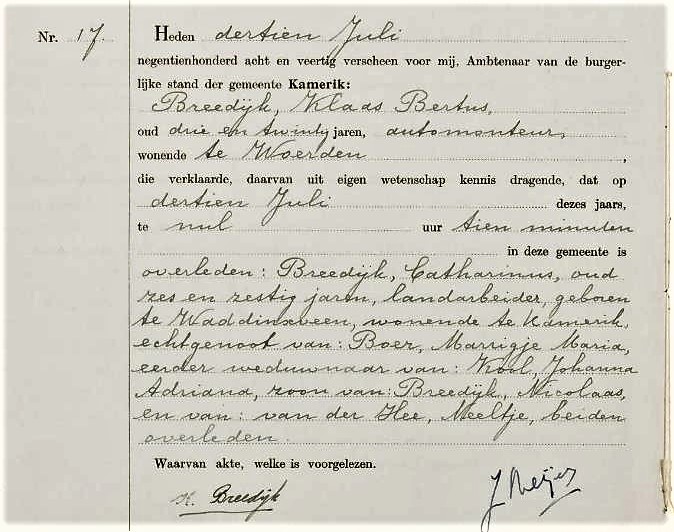 Nr. 17. Heden dertien Juli
negentienhonderd acht en veertig verscheen voor mij, Ambtenaar van de burger-
lijke stand der gemeente Kamerik:
Breedijk, Klaas Bertus,
oud drie en twintig jaren, automonteur,
wonende te Woerden ,
die verklaarde, daarvan uit eigen wetenschap kennis dragende, dat op
dertien Juli dezes jaars,
te nul uur tien minuten
in deze gemeente is
overleden: Breedijk, Catharinus, oud
zes en zestig jaren, landarbeider, geboren
te Waddinxveen, wonende te Kamerik,
echtgenoot van: Boer, Marrigje Maria,
eerder weduwnaar van: Kool, Johanna
Adriana, zoon van: Breedijk, Nicolaas,
en van: van der Hee, Meeltje, beiden
overleden.
Waarvan akte, welke is voorgelezen.
K. Breedijk
J Meijer